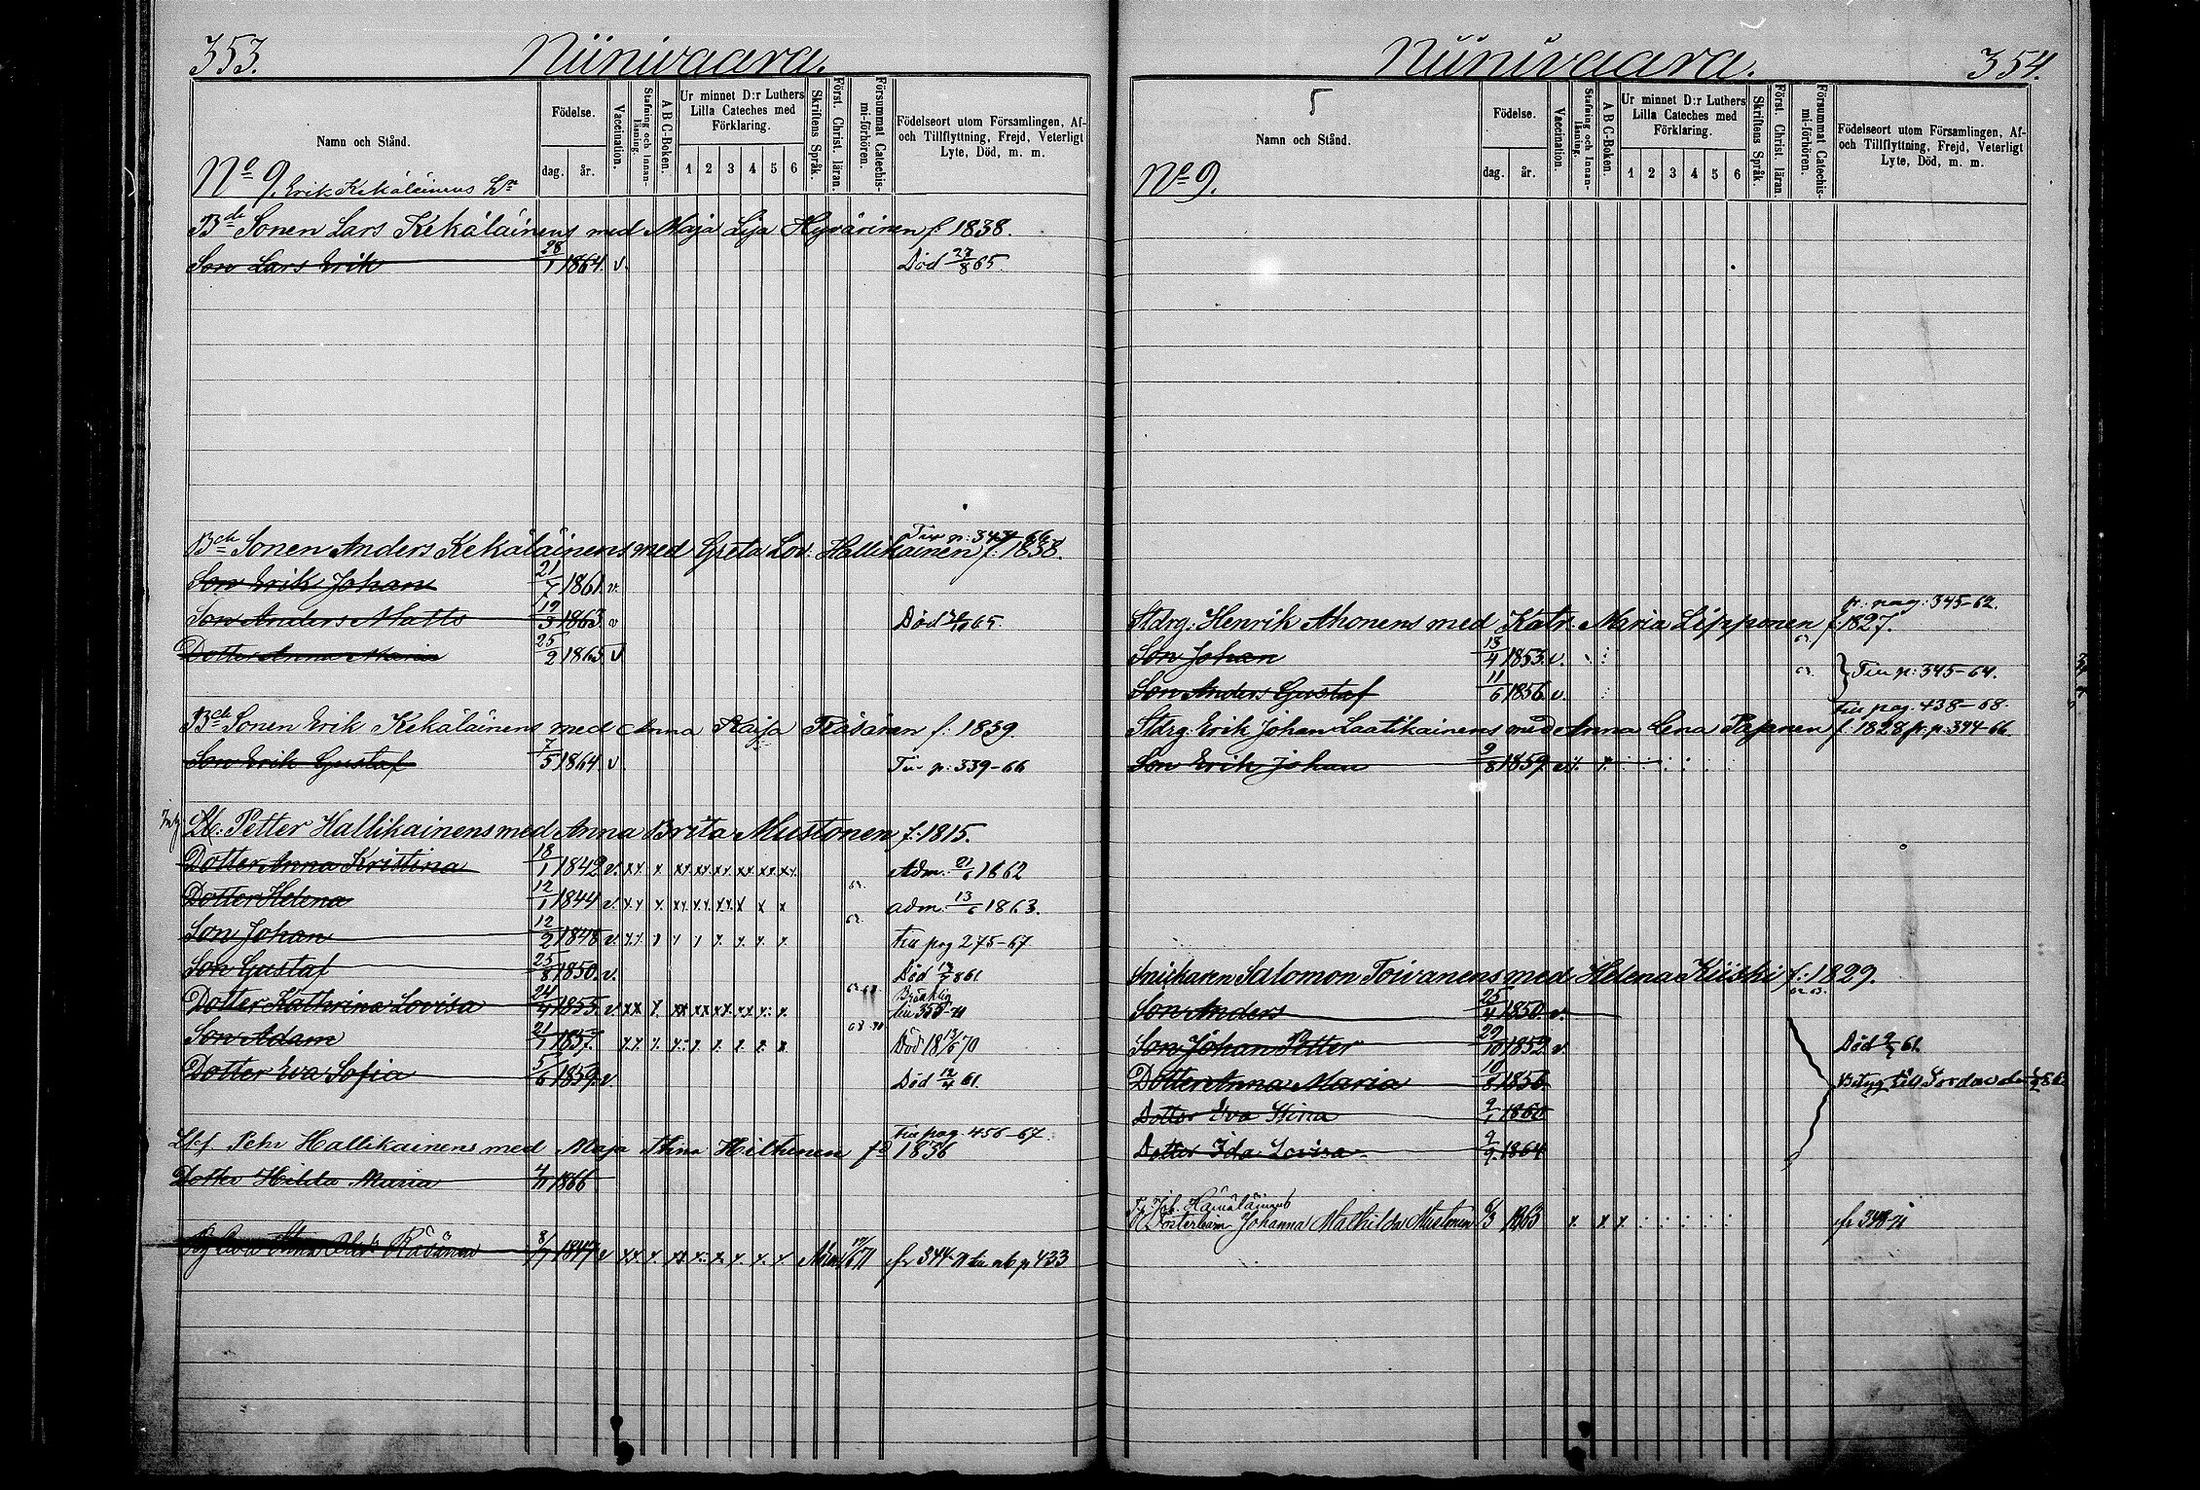 353.
Niinivaara.
Namn och Stånd.
Födelse.
dag.
år.
Vaccination.
Stafning och Innan-läsning.
A B C-Boken.
Ur minnet D:r Luthers
Lilla Cateches med
Förklaring.
1 2 3 4 5 6
Skriftens Språk.
Först. Christ. läran.
Försummat Catechis-mi-förhören.
Födelseort utom Församlingen, Af-
och Tillflyttning, Frejd, Veterligt
Lyte, Död, m. m.
No 9. Erik Kekäläinens
Bde Sonen Lars Kekäläinens med Maja Lisa Hyvärinen f. 1838.
Son Lars Erik 28/1 1864. v. Död 27/8 65.
Tir p. 347-66
Bde Sonen Anders Kekäläinens med Greta Lov. Hallikainen f. 1838.
Son Erik Johan 21/7 1861. v.
Son Anders Matts 19/3 1863. v Död 65.
Dotter Anna Maria 25/2 1865 v
Bde Sonen Erik Kekäläinens med Anna Kaisa Räsänen f. 1839.
Son Erik Gustaf 7/5 1864 v Tir p. 339-66
Petter Hallikainens med Anna Brita Mustonen f. 1815.
Dotter Anna Kristina 18/1 1842 v. xx x xx xx xx xx xx xx Adm. 21/6 1862
Dotter Helena 12/1 1844 v. xx x xx xx xx x x x adm. 13/6 1863.
Son Johan 12/2 1848 v. Tir pag 275-67
Son Gustaf 25/8 1850. v. Död 61.
Dotter Kathrina Lovisa 24/4 1855. v xx x xx xx xx xx x x
Son Adam 21/1 1857. Död 70
Dotter Eva Sofia 5/6 1859. v Död 12/4 61.
Tir pag. 456-67.
Pehr Hallikainens med Maja Stina Hiltunen fd 1836
Dotter Hilda Maria 4/11 1866
Räsänen 8/7 1847 v fr 344-71 p 433
354.
Niinivaara.
5
Namn och Stånd.
Födelse.
dag.
år.
Vaccination.
Stafning och Innan-läsning.
A B C-Boken.
Ur minnet D:r Luthers
Lilla Cateches med
Förklaring.
1 2 3 4 5 6
Skriftens Språk.
Först. Christ. läran.
Försummat Catechis-mi-förhören.
Födelseort utom Församlingen, Af-
och Tillflyttning, Frejd, Veterligt
Lyte, Död, m. m.
No 9.
fr. pag: 345-62.
Stdrg: Henrik Ahonens med Katr. Maria Lipponen f. 1827.
Son Johan 13/4 1853. v.
Son Anders Gustaf 11/6 1856 v. Tir p: 345-64.
Tir pag. 438-68.
Stdrg. Erik Johan Laatikainens med Anna Lena Papinen f. 1828 fr. p. 394-66
Son Erik Johan 9/8 1859.
Salomon Toivanens med Helena Kiiski f. 1829.
Son Anders 25/4 1850. v.
Son Johan Petter 29/10 1852. v Död 61.
Dotter Anna Maria 1856 Betyg till
Dotter Eva Stina 9/1 1860
Dotter Ida Lovisa 9/9 1864
Joh. Hämäläinens
Dosterbarn Johanna Mathilda Mustonen 6/3 1863 x x x fr 348-71